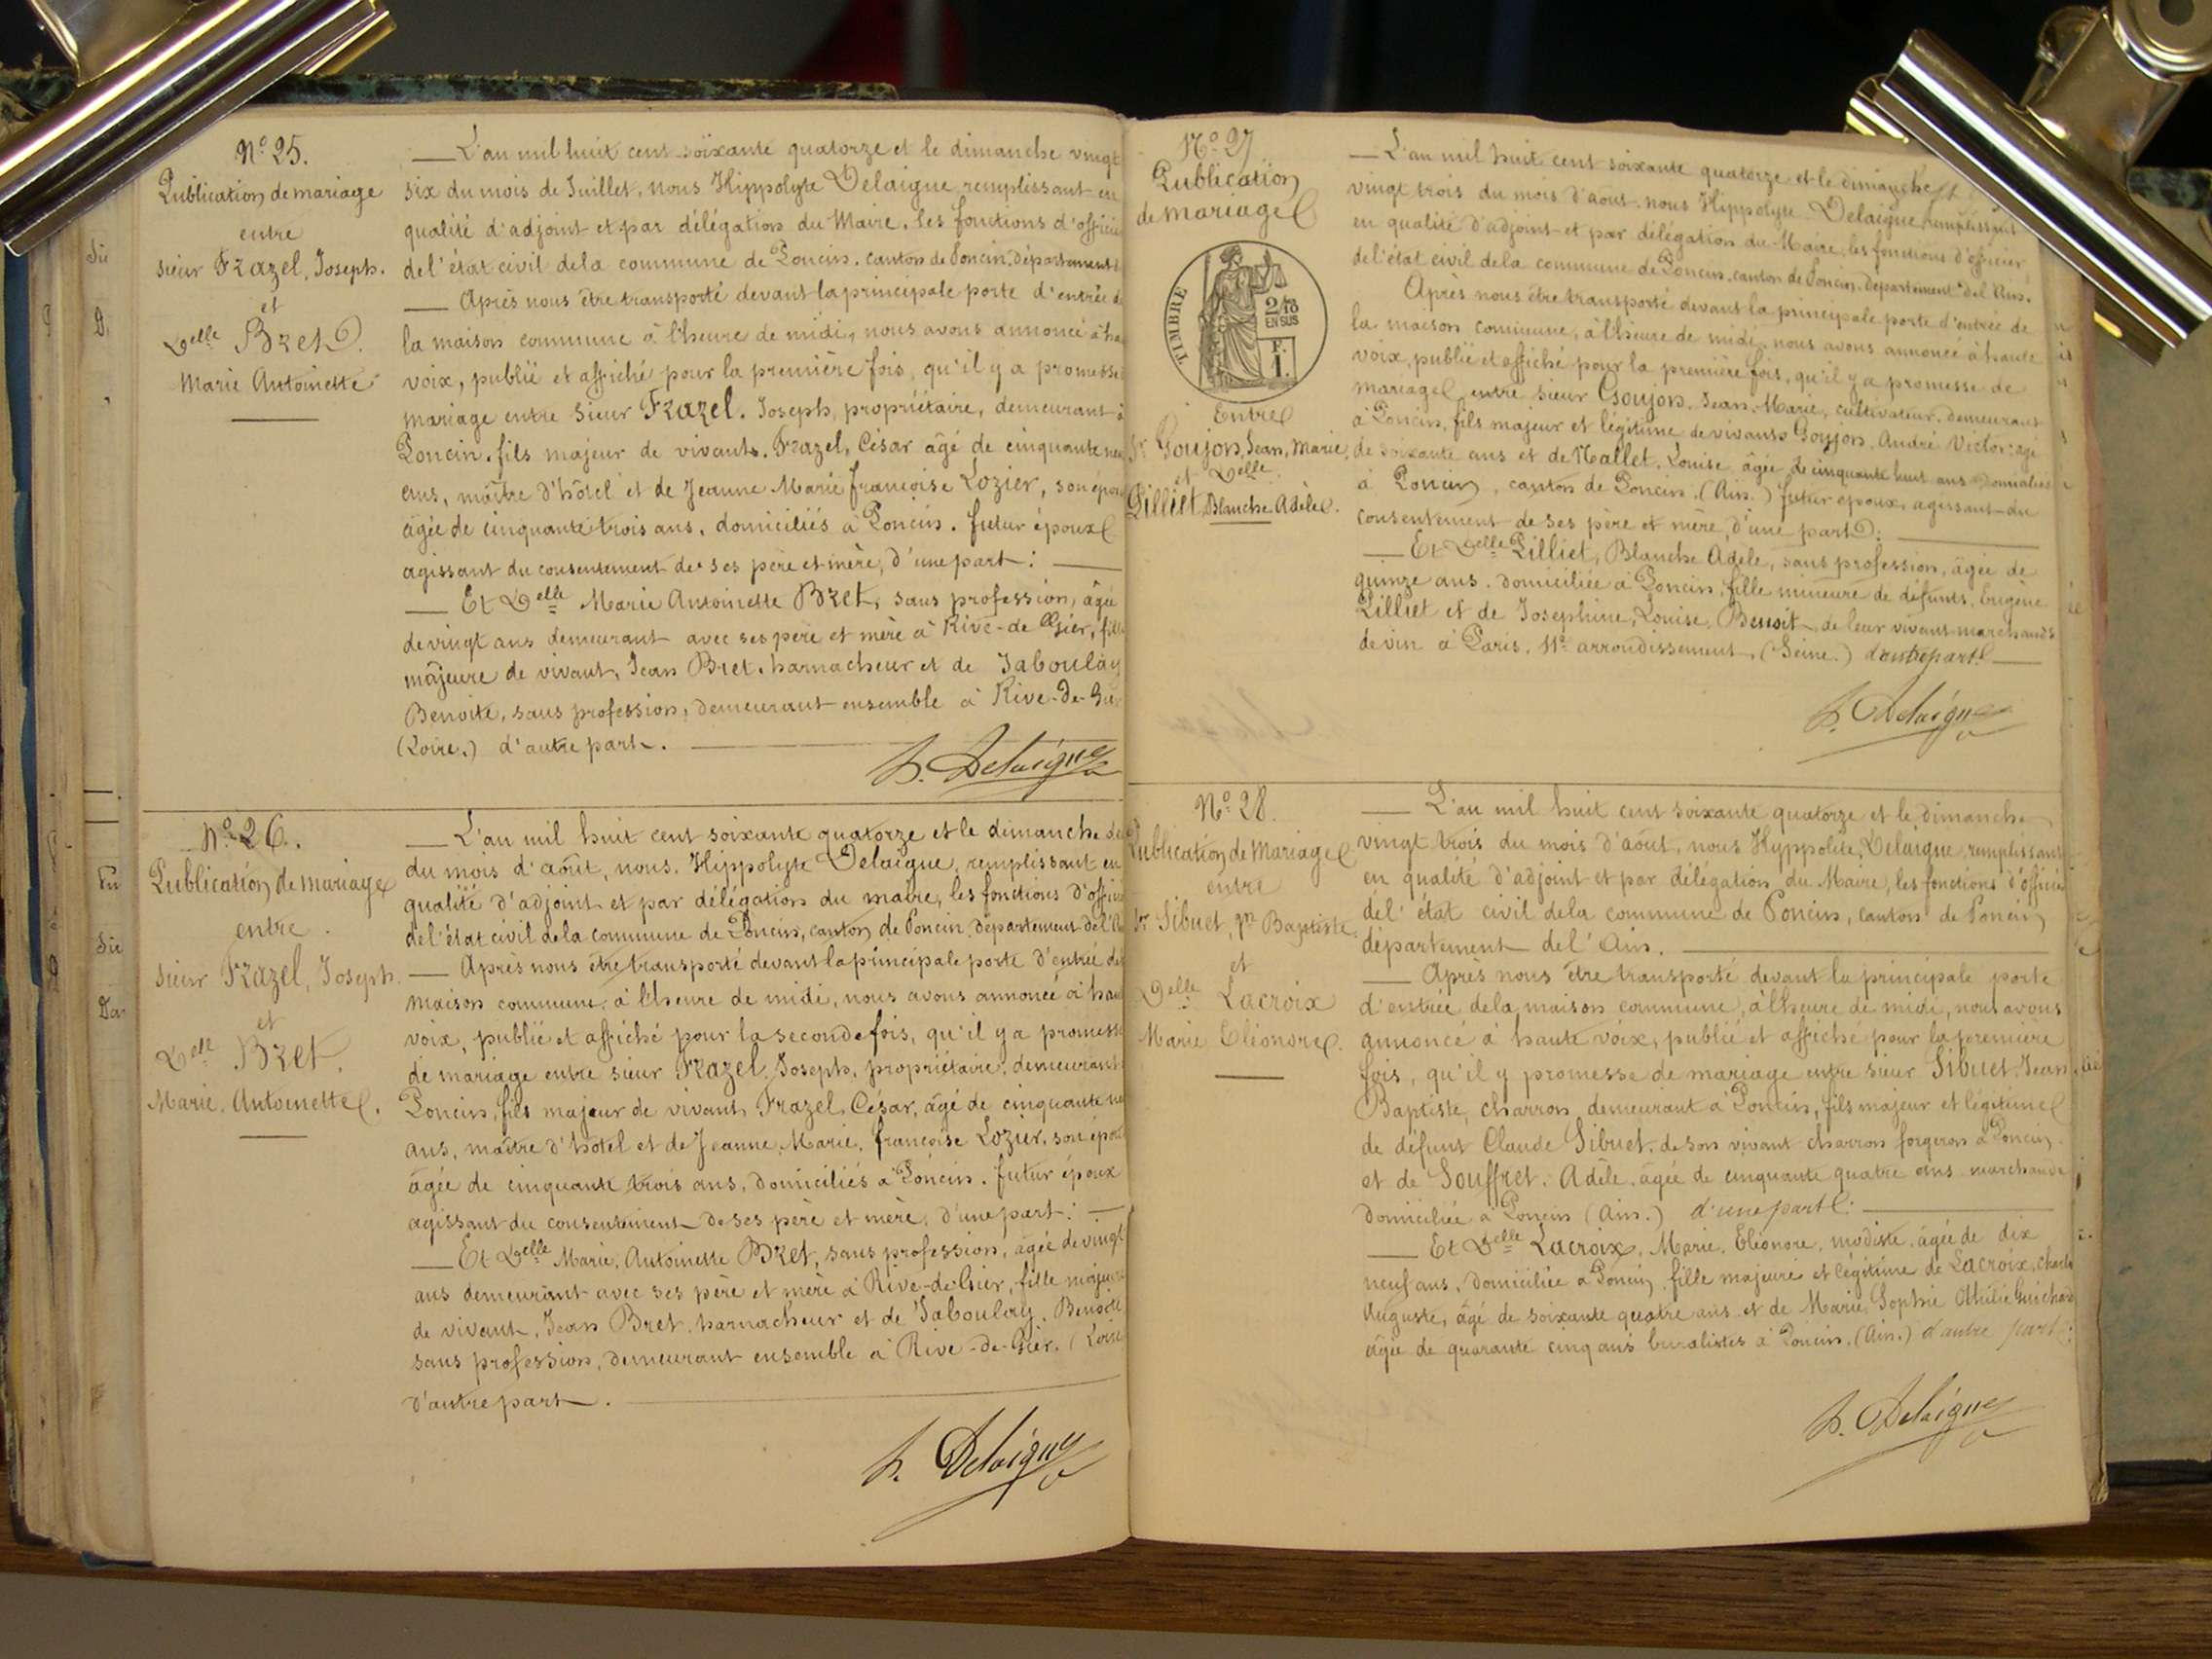 N.o 25.
Publication de mariage
entre
sieur Frazel, Joseph.
et
Delle Bret.
Marie Antoinette
L'an mil huit cent soixante quatorze et le dimanche vingt
six du mois de Juillet, nous Hippolyte Delaigue remplissant en
qualité d'adjoint et par délégation du Maire, les fonctions d'officier
de l'état civil de la commune de Poncin, canton de Poncin, département
Après nous être transporté devant la principale porte d'entrée de
la maison commune à l'heure de midi, nous avons annoncé à hau
voix, publié et affiché pour la première fois, qu'il y a promesse
mariage entre sieur Frazel, Joseph, propriétaire, demeurant à
Poncin, fils majeur de vivants, Frazel, César âgé de cinquante neu
ans, maître d'hôtel et de Jeanne Marie françoise Lozier, son épou
âgée de cinquante trois ans, domiciliés à Poncin, futur époux
agissant du consentement de ses père et mère, d'une part :
Et Delle Marie Antoinette Bret, sans profession, âgée
de vingt ans demeurant avec ses père et mère à Rive-de Gier, fille
majeure de vivant, Jean Bret, harnacheur et de Jaboulay
Benoite, sans profession, demeurant ensemble à Rive-de-Gier
(Loire.) d'autre part.
h. Delaigue
N.o 26.
Publication de mariage
entre
sieur Frazel, Joseph.
et
Delle Bret.
Marie, Antoinette.
L'an mil huit cent soixante quatorze et le dimanche
du mois d'août, nous, Hippolyte Delaigue, remplissant en
qualité d'adjoint et par délégation du maire, les fonctions d'officier
de l'état civil de la commune de Poncin, canton de Poncin, département de l'A
Après nous être transporté devant la principale porte d'entrée de
maison commune, à l'heure de midi, nous avons annoncé à haute
voix, publié et affiché pour la seconde fois, qu'il y a promesse
de mariage entre sieur Frazel, Joseph, propriétaire, demeurant
Poncin, fils majeur de vivant, Frazel, César, âgé de cinquante neu
ans, maître d'hôtel et de Jeanne, Marie, françoise Lozier, son épou
âgée de cinquante trois ans, domiciliés à Poncin, futur époux
agissant du consentement de ses père et mère, d'une part :
Et Delle Marie, Antoinette Bret, sans profession, âgée de vingt
ans demeurant avec ses père et mère à Rive-de-Gier, fille majeure
de vivant, Jean Bret, harnacheur et de Jaboulay, Benoite
sans profession, demeurant ensemble à Rive-de-Gier, (Loire
d'autre part.
h. Delaigue
N.o 27
Publication
de mariage
TIMBRE
2/10
EN SUS
F.
1.
Entre
Sr Goujon, Jean, Marie,
et Delle
Pilliet Blanche Adèle.
L'an mil huit cent soixante quatorze et le dimanche
vingt trois du mois d'août, nous Hippolyte Delaigue remplissant
en qualité d'adjoint et par délégation du Maire, les fonctions d'officier
de l'état civil de la commune de Poncin, canton de Poncin, département de l'Ain.
Après nous être transporté devant la principale porte d'entrée de
la maison commune, à l'heure de midi, nous avons annoncé à haute
voix, publié et affiché pour la première fois, qu'il y a promesse de
mariage entre sieur Goujon, Jean-Marie, cultivateur, demeurant
à Poncin, fils majeur et légitime de vivants Goujon, André Victor, âgé
de soixante ans et de Mallet, Louise, âgée de cinquante huit ans domiciliés
à Poncin, canton de Poncin, (Ain.) futur époux, agissant du
consentement de ses père et mère, d'une part.
Et Delle Pilliet, Blanche Adèle, sans profession, âgée de
quinze ans, domiciliée à Poncin, fille mineure de défunts, Eugène
Pilliet et de Josephine, Louise, Benoit, de leur vivant marchands
de vin à Paris, 11e arrondissement, (Seine.) d'autre part
h. Delaigue
N.o 28.
Publication de Mariage
entre
Sr Sibuet, Jn Baptiste
et
Delle Lacroix
Marie Eléonore.
L'an mil huit cent soixante quatorze et le dimanche
vingt trois du mois d'août, nous Hyppolite, Delaigue remplissant
en qualité d'adjoint et par délégation du Maire, les fonctions d'officier
de l'état civil de la commune de Poncin, canton de Poncin
département de l'Ain.
Après nous être transporté devant la principale porte
d'entrée de la maison commune, à l'heure de midi, nous avons
annoncé à haute voix, publié et affiché pour la première
fois, qu'il y promesse de mariage entre sieur Sibuet, Jean
Baptiste, charron, demeurant à Poncin, fils majeur et légitime
de défunt Claude Sibuet, de son vivant charron forgeron à Poncin
et de Souffret, Adèle, âgée de cinquante quatre ans marchande
domiciliée à Poncin (Ain.) d'une part.
Et Delle Lacroix, Marie, Eléonore, modiste, âgée de dix
neuf ans, domiciliée à Poncin, fille majeure et légitime de Lacroix, Charles
Auguste, âgé de soixante quatre ans et de Marie, Sophie Othilie Guichard
âgée de quarante cinq ans buralistes à Poncin, (Ain.) d'autre part.
h. Delaigue